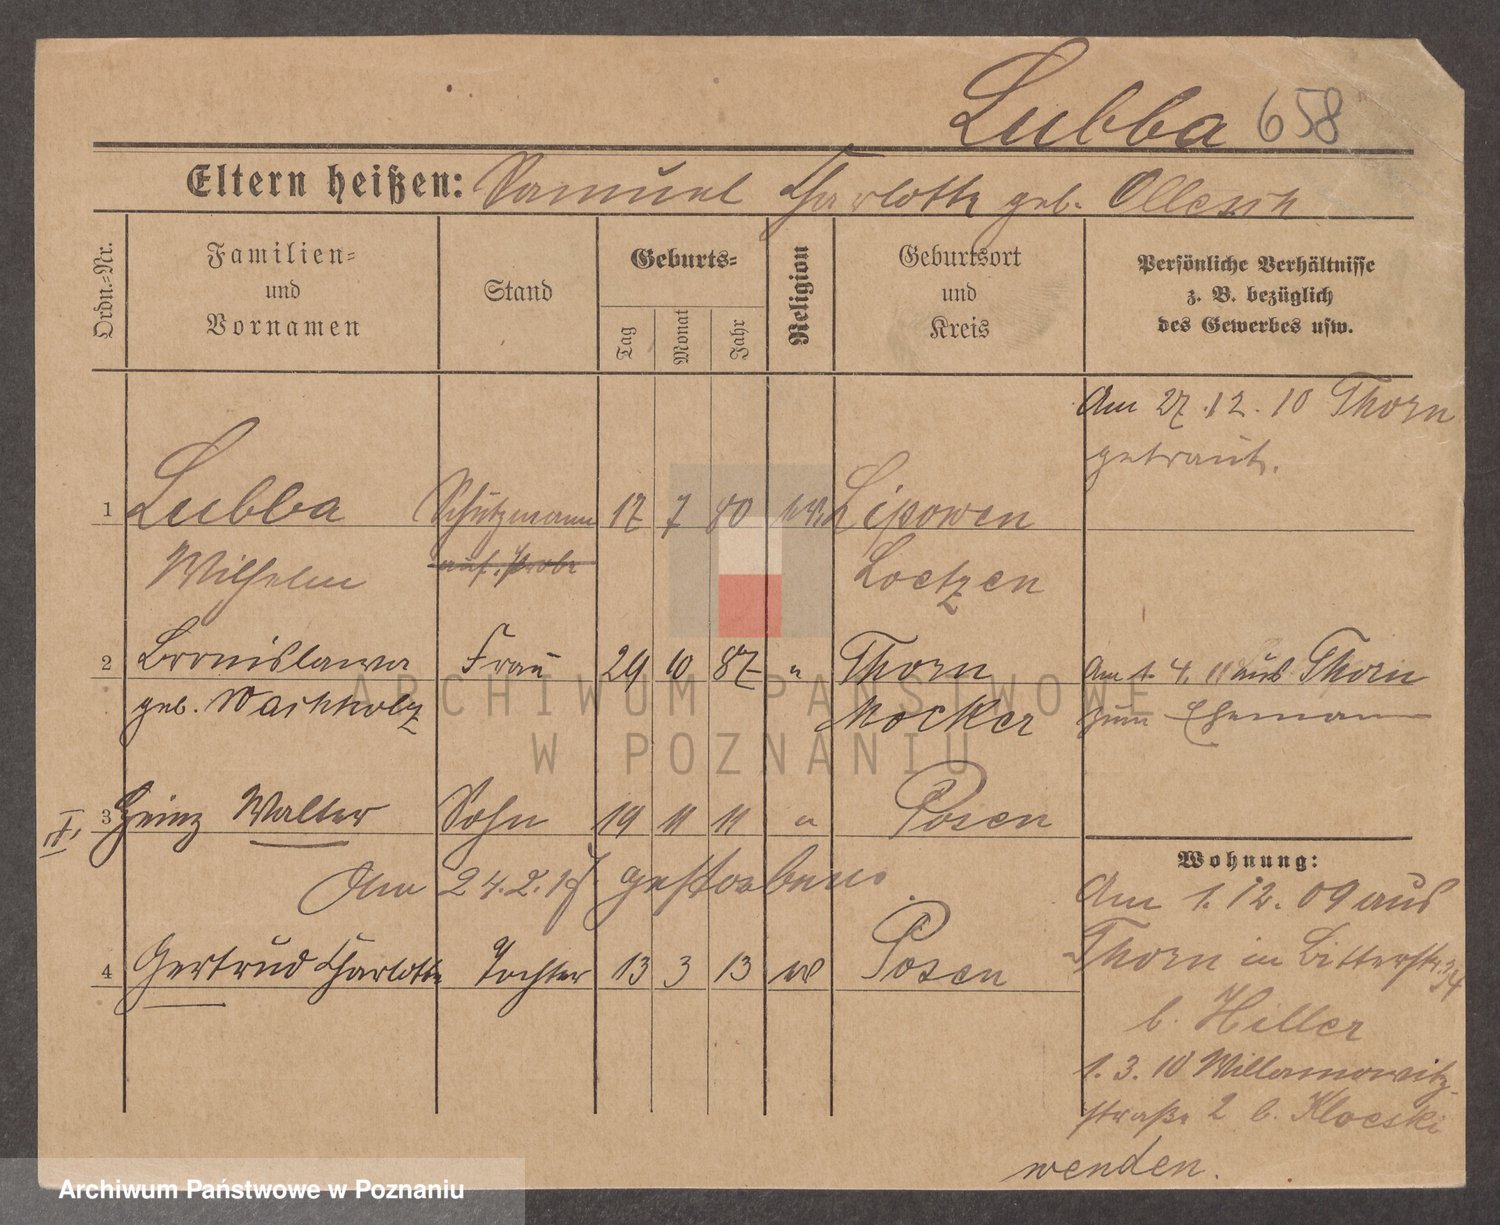 Lubba 658
Eltern heißen: Samuel Charlotte geb. Ollesch
Ordn.=Nr.
Familien=
und
Vornamen
Stand
Geburts=
Tag
Monat
Jahr
Religion
Geburtsort
und
Kreis
Persönliche Verhältnisse
z. B. bezüglich
des Gewerbes usw.
Am 27.12.10 Thorn
getraut.
1 Lubba Schutzmann 17 7 80 Lipowen
Wilhelm auf Probe Loetzen
2 Bronislawa Frau 29 10 87 " Thorn Am 1.4.11 aus Thorn
geb. Mocker zum Ehemann
3 Heinz Walter Sohn 19 11 11 " Posen
Am 24.2.15 gestorben.
4 Gertrud Charlotte Tochter 13 3 13 Posen
Wohnung:
Am 1.12.09 aus
Thorn in Bitterstr. 34
b. Hiller
1.3.10 Willamowitz-
straße 2 b. Kloeski
wenden.
ARCHIWUM PAŃSTWOWE
W POZNANIU
Archiwum Państwowe w Poznaniu